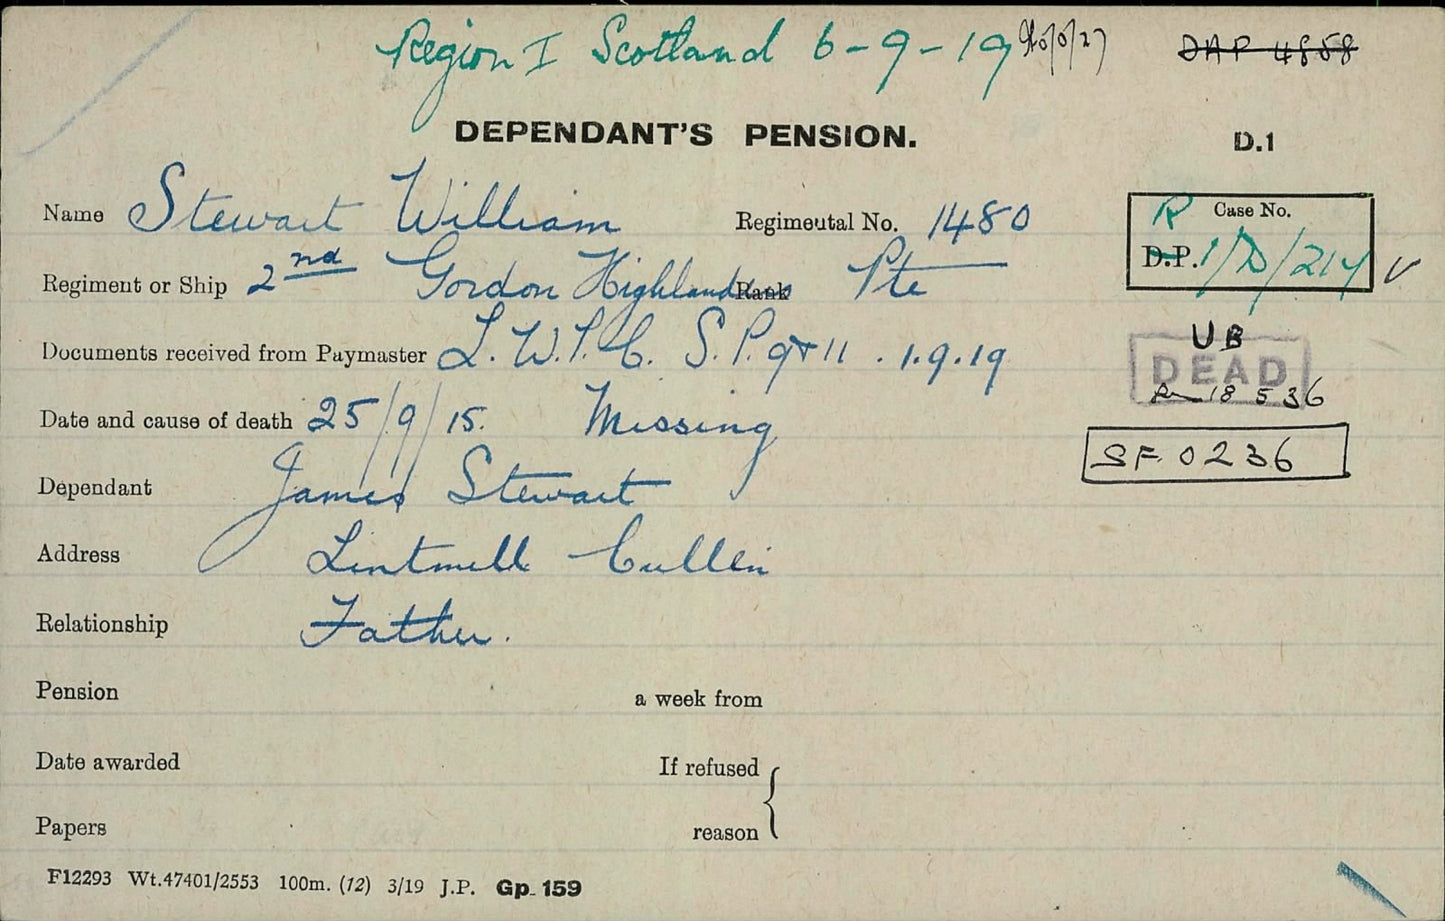 Region I Scotland 6-9-19 DAP 4858
DEPENDANT'S PENSION. D.1
Name Stewart William Regimental No. 1480
R Case No.
Regiment or Ship 2nd Gordon Highlanders Rank Pte
D.P. 1/D/214
Documents received from Paymaster L.W.P.C. S.P. 9+11 . 1.9.19
UB
DEAD
18 5 36
Date and cause of death 25/9/15. Missing
SF. 0236
Dependant James Stewart
Address Lintmill Cullen
Relationship Father.
Pension a week from
Date awarded If refused
Papers reason
F12293 Wt.47401/2553 100m. (12) 3/19 J.P. Gp. 159